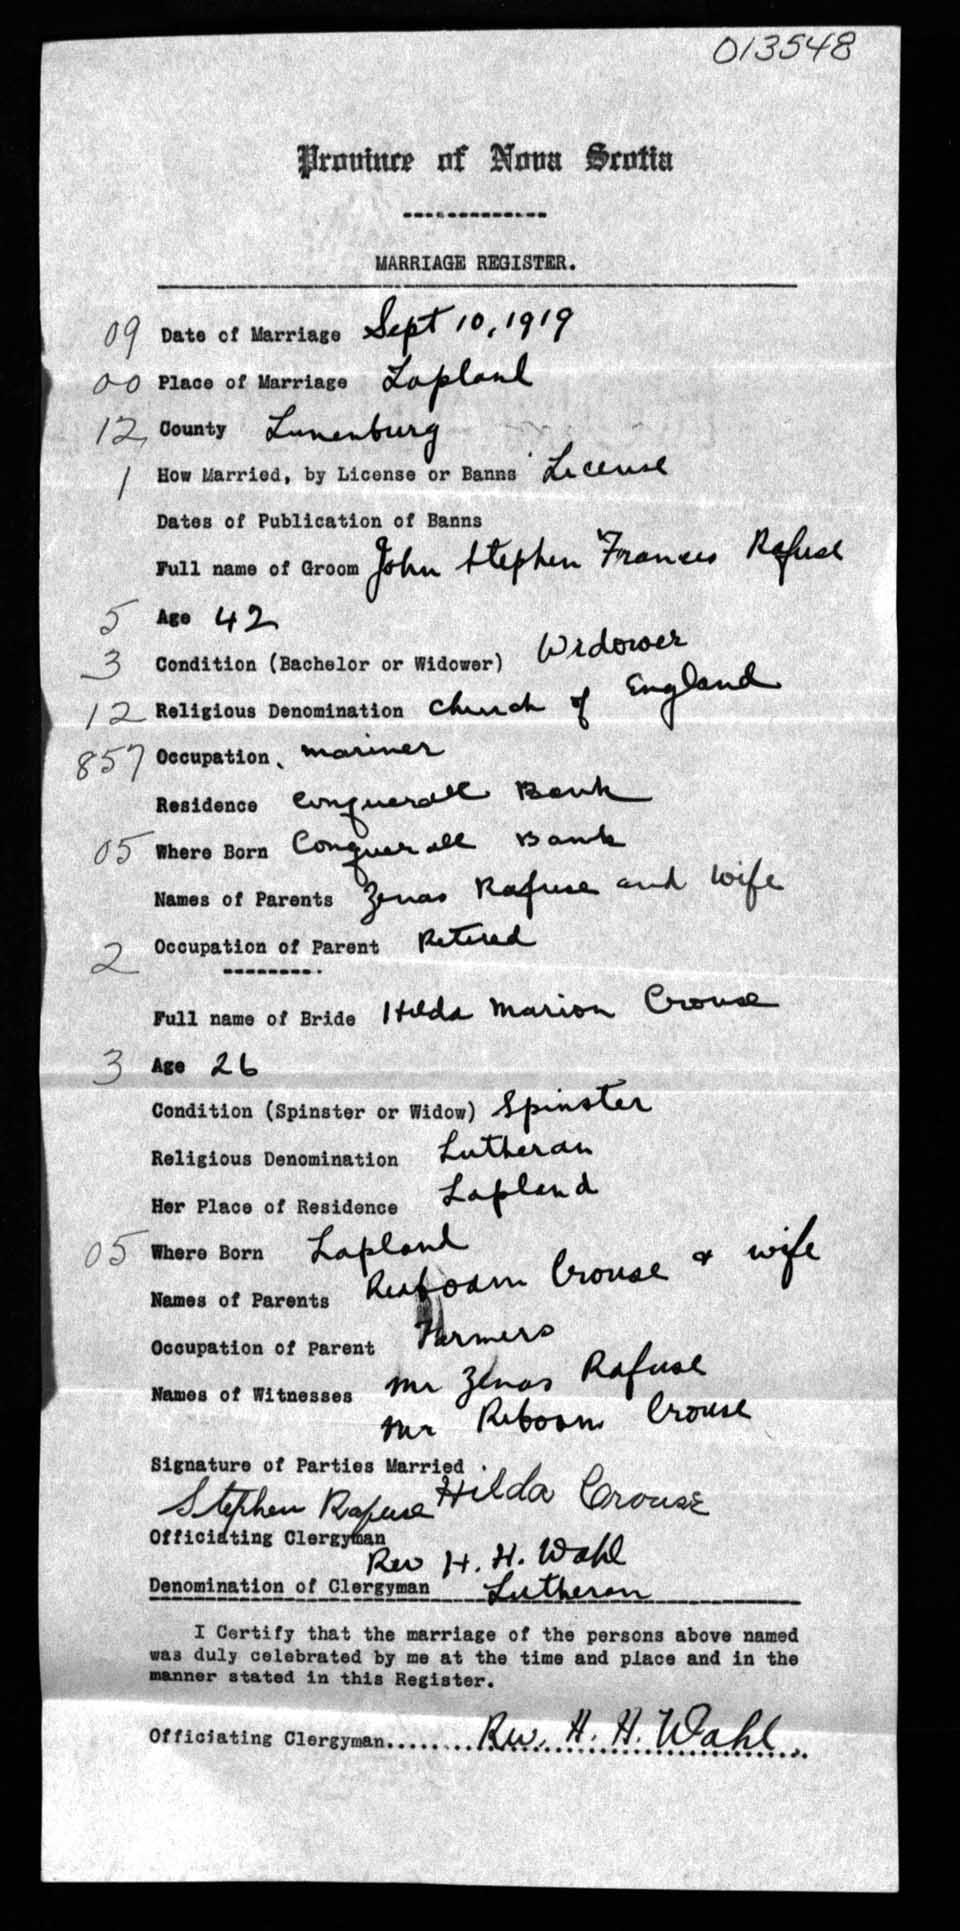 013548
Province of Nova Scotia
MARRIAGE REGISTER.
09 Date of Marriage Sept 10, 1919
00 Place of Marriage Lapland
12 County Lunenburg
1 How Married, by License or Banns License
Dates of Publication of Banns
Full name of Groom John Stephen Frances Rafuse
5 Age 42
3 Condition (Bachelor or Widower) Widower
12 Religious Denomination Church of England
857 Occupation mariner
Residence Conquerall Bank
05 Where Born Conquerall Bank
Names of Parents Zenas Rafuse and wife
2 Occupation of Parent Retired
Full name of Bride Hilda Marion Crouse
3 Age 26
Condition (Spinster or Widow) Spinster
Religious Denomination Lutheran
Her Place of Residence Lapland
05 Where Born Lapland
Names of Parents Reaboam Crouse & wife
Occupation of Parent Farmers
Names of Witnesses Mr Zenas Rafuse
Mr Reboam Crouse
Signature of Parties Married
Stephen Rafuse Hilda Crouse
Officiating Clergyman
Rev H. H. Wahl
Denomination of Clergyman Lutheran
I Certify that the marriage of the persons above named
was duly celebrated by me at the time and place and in the
manner stated in this Register.
Officiating Clergyman........Rev. H. H. Wahl